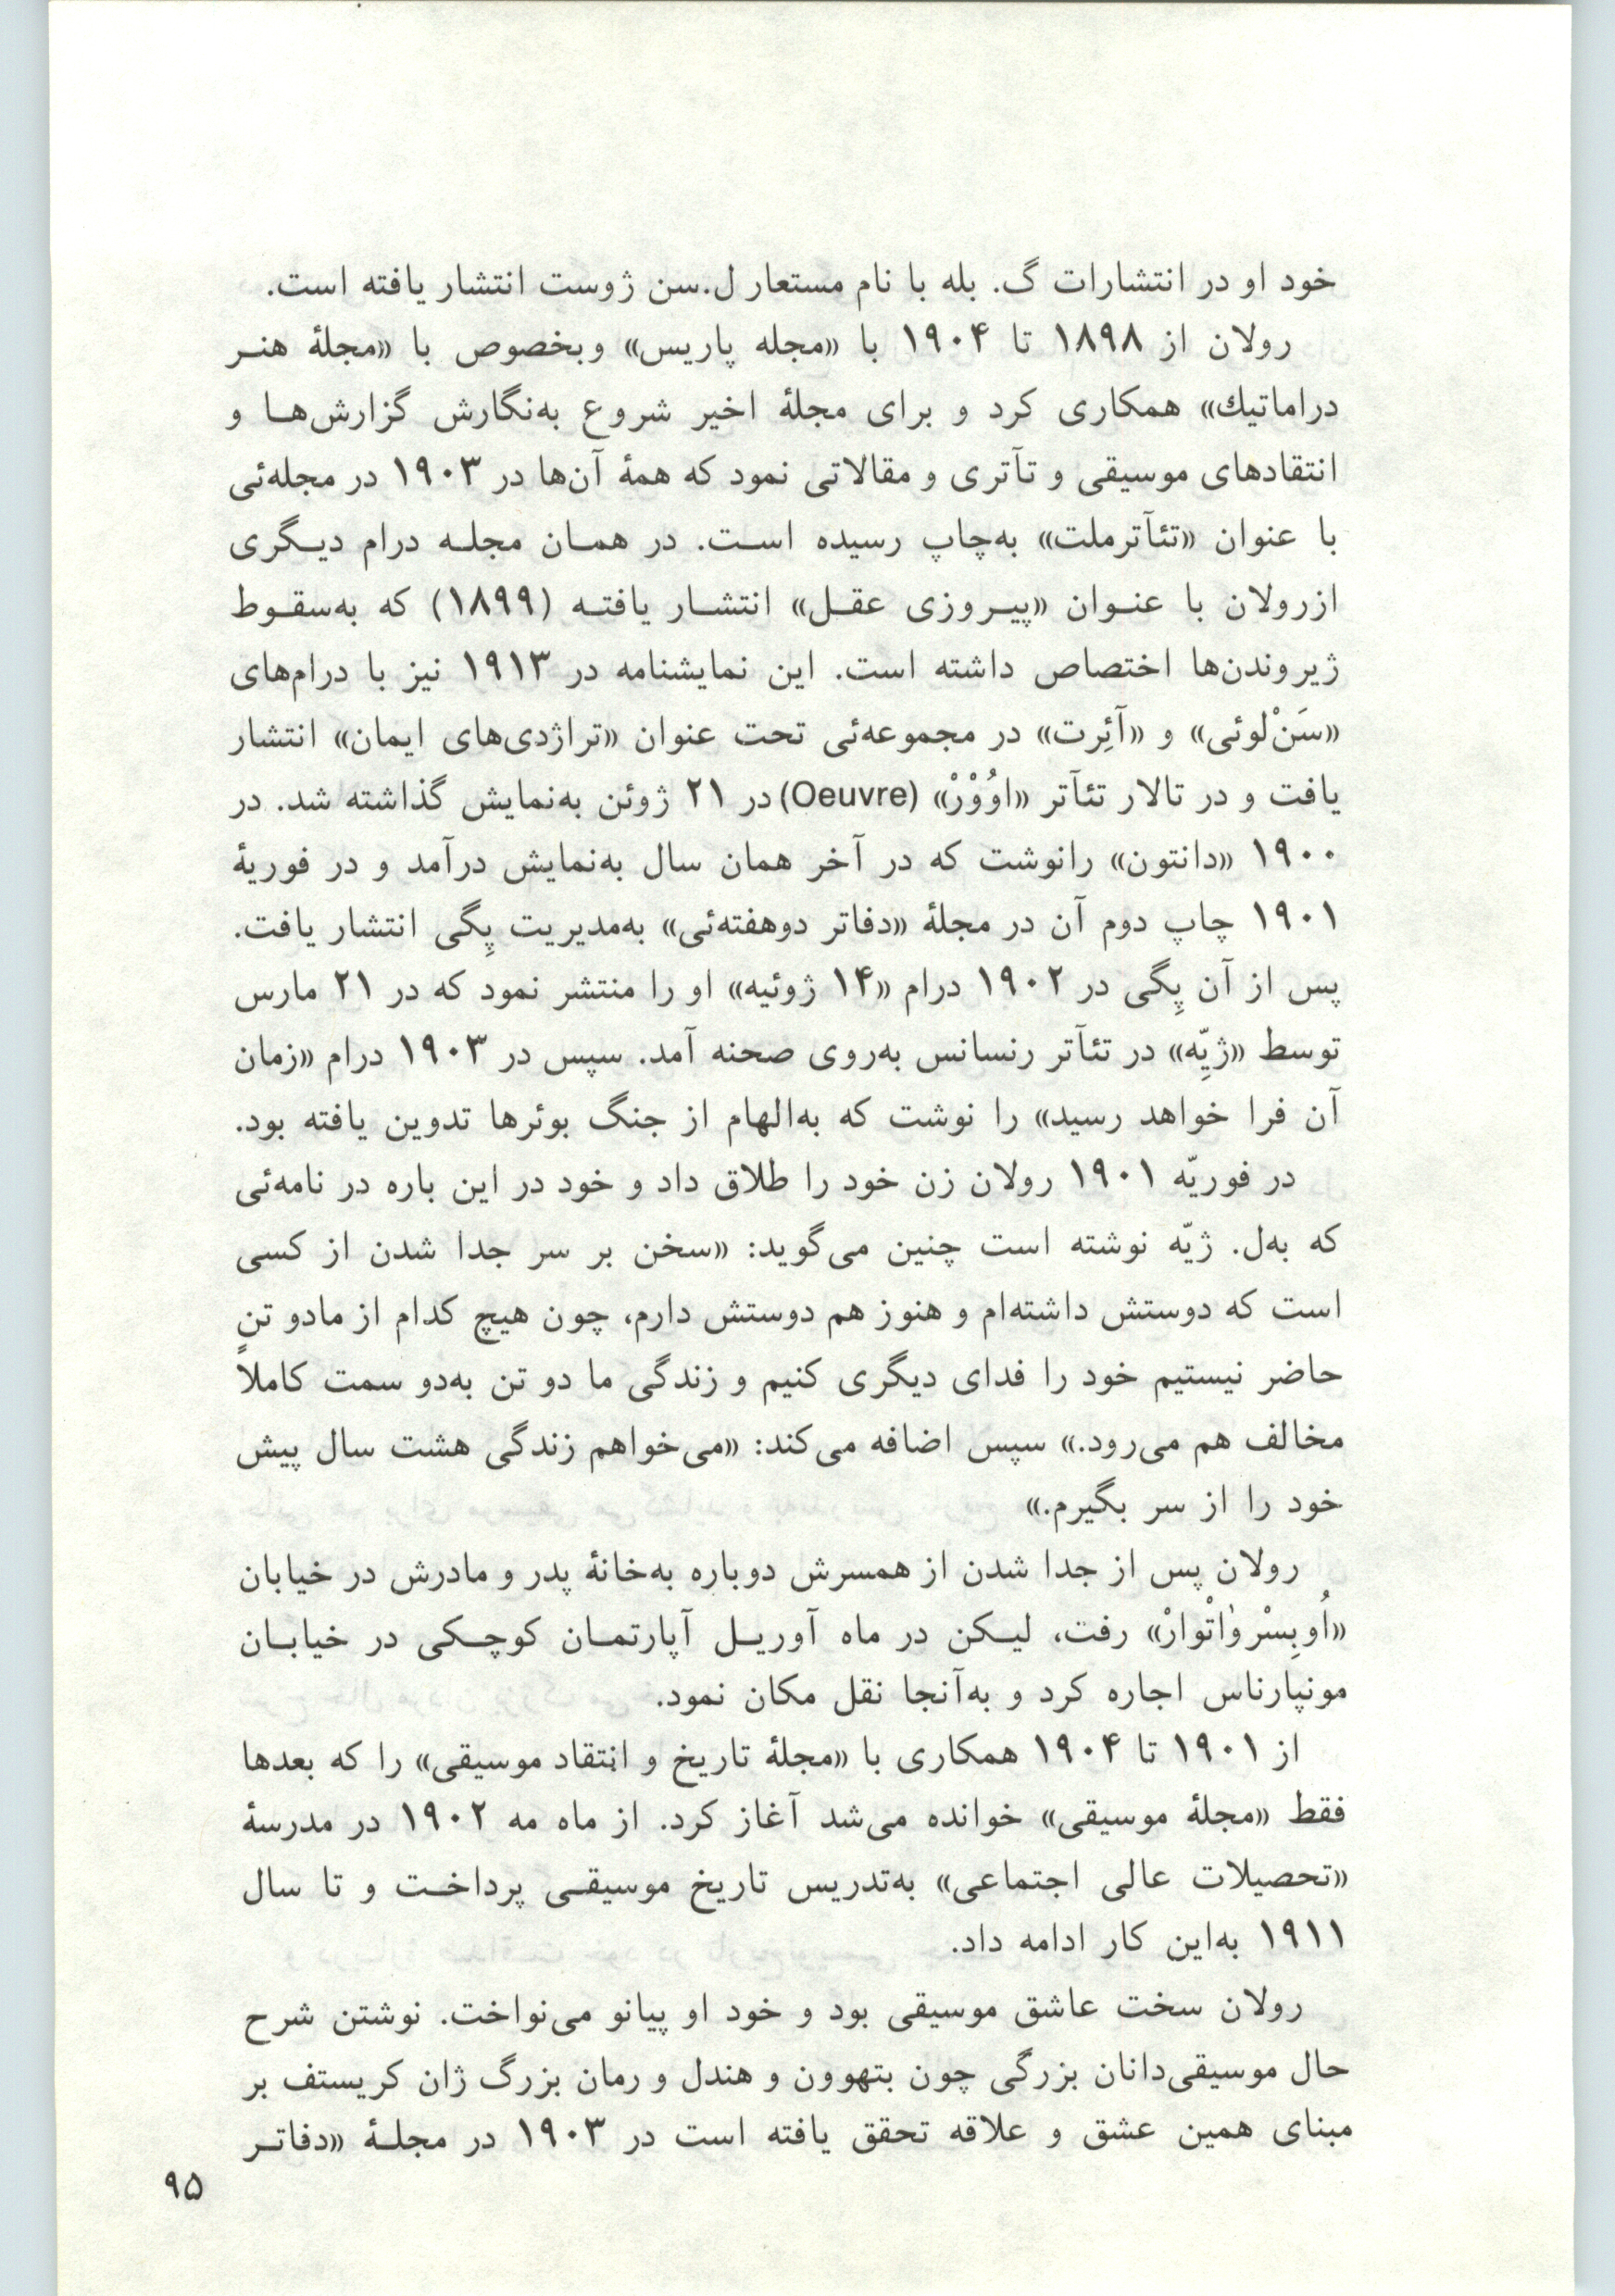 خود او در انتشارات گ. بله با نام مستعار ل.سن ژوست انتشار یافته است.
رولان از ۱۸۹۸ تا ۱۹۰۴ با «مجله پاریس» وبخصوص با «مجلهٔ هنـر
دراماتیك» همکاری کرد و برای مجلهٔ اخیر شروع به‌نگارش گزارش‌هـا و
انتقادهای موسیقی و تآتری و مقالاتی نمود که همهٔ آن‌ها در ۱۹۰۳ در مجله‌ئی
با عنوان «تئآترملت» به‌چاپ رسیده اسـت. در همـان مجلـه درام دیـگری
ازرولان با عنـوان «پیـروزی عقـل» انتشـار یافتـه (۱۸۹۹) که به‌سقـوط
ژیروندن‌ها اختصاص داشته است. این نمایشنامه در ۱۹۱۳ نیز با درام‌های
«سَنْ‌لوئی» و «آئِرت» در مجموعه‌ئی تحت عنوان «تراژدی‌های ایمان» انتشار
یافت و در تالار تئآتر «اوُوْرْ» (Oeuvre) در ۲۱ ژوئن به‌نمایش گذاشته شد. در
۱۹۰۰ «دانتون» رانوشت که در آخر همان سال به‌نمایش درآمد و در فوریهٔ
۱۹۰۱ چاپ دوم آن در مجلهٔ «دفاتر دوهفته‌ئی» به‌مدیریت پِگی انتشار یافت.
پس از آن پِگی در ۱۹۰۲ درام «۱۴ ژوئیه» او را منتشر نمود که در ۲۱ مارس
توسط «ژیِّه» در تئآتر رنسانس به‌روی صحنه آمد. سپس در ۱۹۰۳ درام «زمان
آن فرا خواهد رسید» را نوشت که به‌الهام از جنگ بوئرها تدوین یافته بود.
در فوریّه ۱۹۰۱ رولان زن خود را طلاق داد و خود در این باره در نامه‌ئی
که به‌ل. ژیّه نوشته است چنین می‌گوید: «سخن بر سر جدا شدن از کسی
است که دوستش داشته‌ام و هنوز هم دوستش دارم، چون هیچ کدام از مادو تنٍ
حاضر نیستیم خود را فدای دیگری کنیم و زندگی ما دو تن به‌دو سمت کاملاً
مخالف هم می‌رود.» سپس اضافه می‌کند: «می‌خواهم زندگی هشت سال پیش
خود را از سر بگیرم.»
رولان پس از جدا شدن از همسرش دوباره به‌خانهٔ پدر و مادرش در خیابان
«اُوبِسْرواٰتْوارْ» رفت، لیـکن در ماه آوریـل آپارتمـان کوچـکی در خیابـان
مونپارناس اجاره کرد و به‌آنجا نقل مکان نمود.
از ۱۹۰۱ تا ۱۹۰۴ همکاری با «مجلهٔ تاریخ و انتقاد موسیقی» را که بعدها
فقط «مجلهٔ موسیقی» خوانده می‌شد آغاز کرد. از ماه مه ۱۹۰۲ در مدرسهٔ
«تحصیلات عالی اجتماعی» به‌تدریس تاریخ موسیقـی پرداخـت و تا سال
۱۹۱۱ به‌این کار ادامه داد.
رولان سخت عاشق موسیقی بود و خود او پیانو می‌نواخت. نوشتن شرح
حال موسیقی‌دانان بزرگی چون بتهوون و هندل و رمان بزرگ ژان کریستف بر
مبنای همین عشق و علاقه تحقق یافته است در ۱۹۰۳ در مجلـهٔ «دفاتـر
۹۵